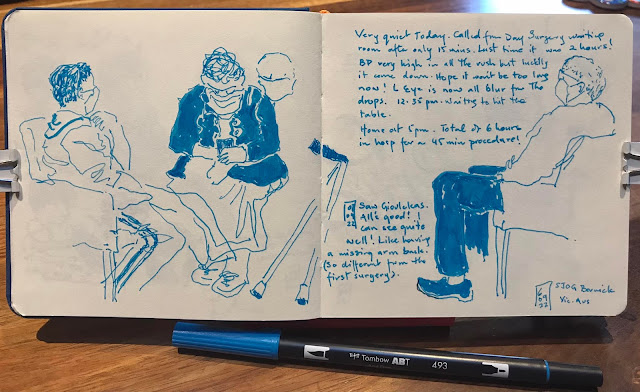 Very quiet Today. Called from Day Surgery waiting
room after only 15 mins. Last time it was 2 hours!
BP very high in all the rush but luckily
it came down. Hope it won't be too long
now! L Eye is now all Blur from The
drops. 12.35 pm. Waiting to hit the
table.
Home at 5pm. Total of 6 hours
in hosp for a 45 min procedure!
Saw
All's good! I
can see quite
well! Like having
a missing arm back.
(So different from the
first surgery).
09
22
SJOG Berwick
Vic. Aus
09
22
Tombow ABT
493